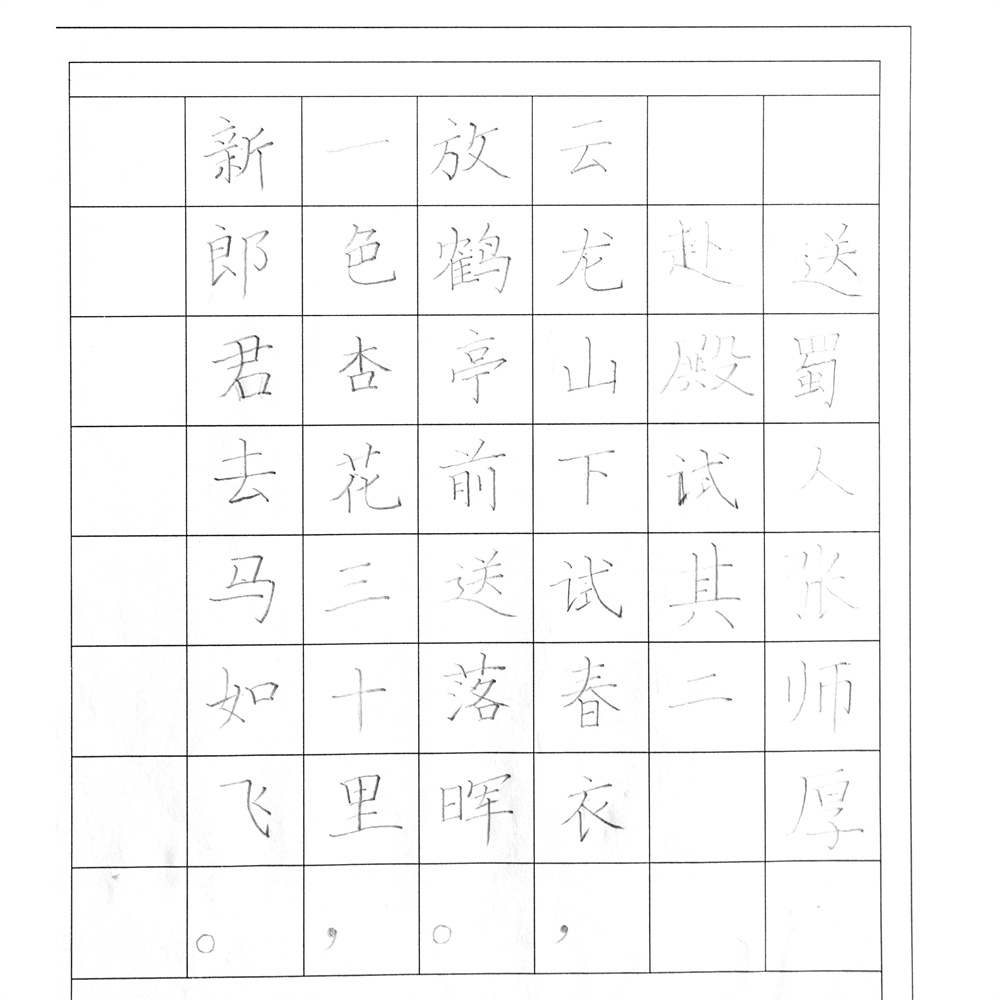 送蜀人张师厚
赴殿试其二
云龙山下试春衣，
放鹤亭前送落晖。
一色杏花三十里，
新郎君去马如飞。